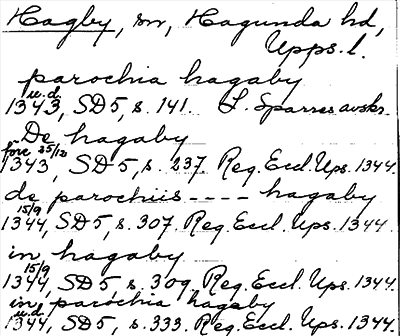 Hagby, sn, Hagunda hd,
Upps. l.
parochia hagaby
u.d.
1343, SD5, s. 141. L. Sparres avskr.
De hagaby
före 25/12
1343, SD5, s. 237. Reg. Eccl. Ups. 1344.
de parochiis ---- hagaby
15/9
1344, SD5, s. 307. Reg. Eccl. Ups. 1344
in hagaby
15/9
1344, SD5, s. 309. Reg. Eccl. Ups. 1344.
in parochia hagaby
u.d.
1344, SD5, s. 333. Reg. Eccl. Ups. 1344.